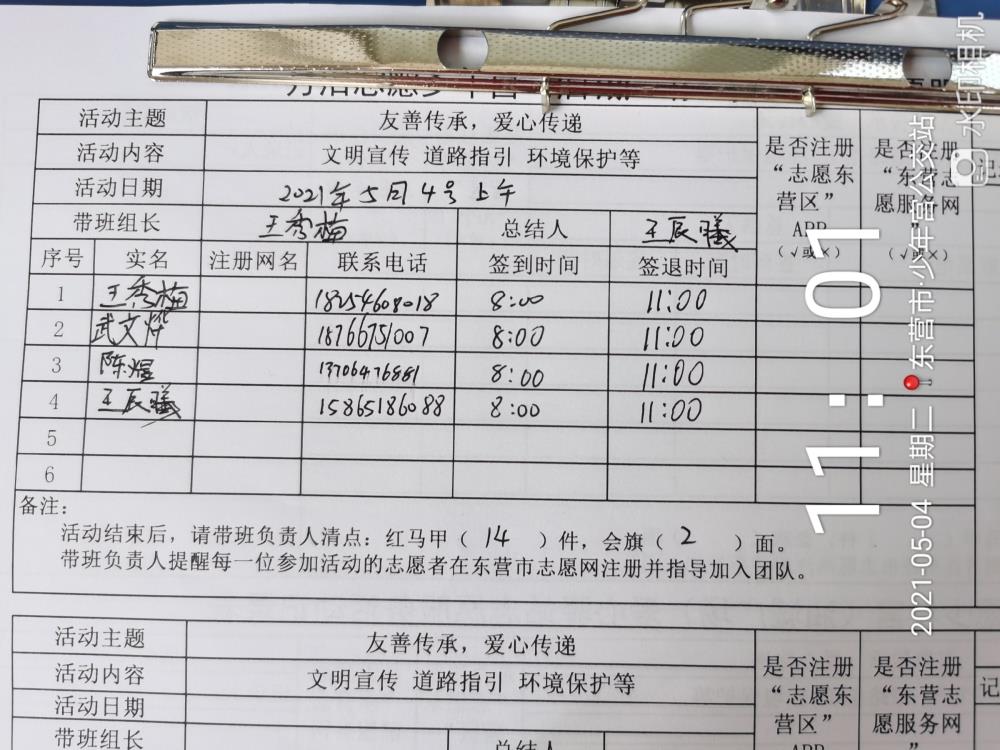 活动主题 友善传承，爱心传递
活动内容 文明宣传 道路指引 环境保护等
活动日期 2021年5月4号上午
带班组长 王秀梅 总结人 王辰曦
是否注册“志愿东营区”APP（√或×）
是否注册“东营志愿服务网”（√或×）
记
序号 实名 注册网名 联系电话 签到时间 签退时间
1 王秀梅 18254608018 8:00 11:00
2 武文烨 18766751007 8:00 11:00
3 陈煜 13706476881 8:00 11:00
4 王辰曦 15865186088 8:00 11:00
5
6
备注：
活动结束后，请带班负责人清点：红马甲（ 14 ）件，会旗（ 2 ）面。
带班负责人提醒每一位参加活动的志愿者在东营市志愿网注册并指导加入团队。
活动主题 友善传承，爱心传递
活动内容 文明宣传 道路指引 环境保护等
活动日期
带班组长 总结人
是否注册“志愿东营区”APP
是否注册“东营志愿服务网”
记
水印相机
11:01
2021-05-04 星期二 东营市·少年宫公交站